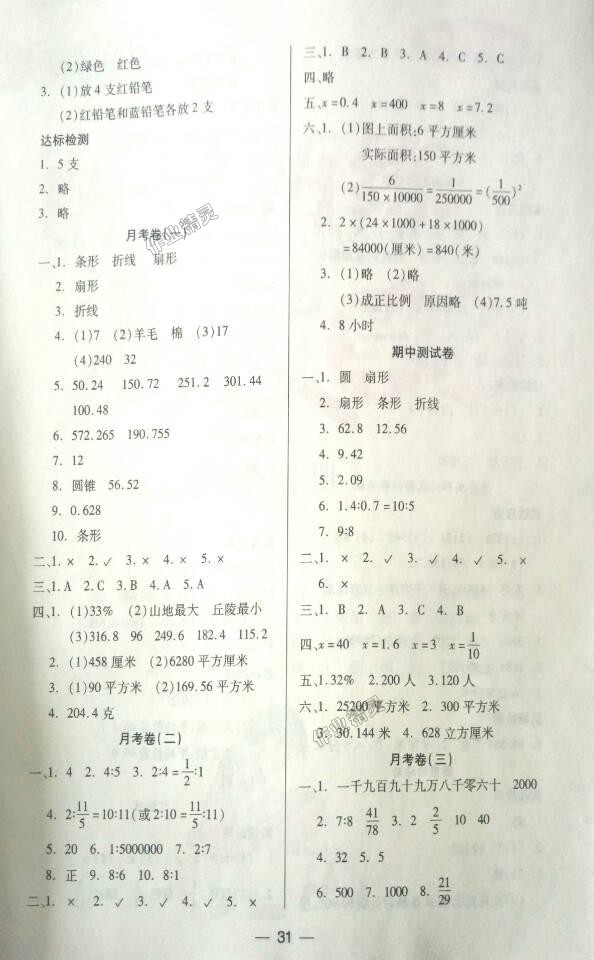 (2)绿色 红色
3. (1)放4支红铅笔
(2)红铅笔和蓝铅笔各放2支
达标检测
1. 5支
2. 略
3. 略
月考卷(一)
一、1. 条形 折线 扇形
2. 扇形
3. 折线
4. (1)7 (2)羊毛 棉 (3)17
(4)240 32
5. 50.24 150.72 251.2 301.44
100.48
6. 572.265 190.755
7. 12
8. 圆锥 56.52
9. 0.628
10. 条形
二、1. × 2. ✓ 3. × 4. × 5. ×
三、1. A 2. C 3. B 4. A 5. A
四、1. (1)33% (2)山地最大 丘陵最小
(3)316.8 96 249.6 182.4 115.2
2. (1)458厘米 (2)6280平方厘米
3. (1)90平方米 (2)169.56平方米
4. 204.4克
月考卷(二)
一、1. 4 2. 4:5 3. 2:4=1/2:1
4. 2:11/5=10:11(或2:10=11/5:11)
5. 20 6. 1:5000000 7. 2:7
8. 正 9. 8:6 10. 8:1
二、1. × 2. ✓ 3. ✓ 4. ✓ 5. ×
三、1. B 2. B 3. A 4. C 5. C
四、略
五、x=0.4 x=400 x=8 x=7.2
六、1. (1)图上面积:6平方厘米
实际面积:150平方米
(2)6/(150×10000)=1/250000=(1/500)²
2. 2×(24×1000+18×1000)
=84000(厘米)=840(米)
3. (1)略 (2)略
(3)成正比例 原因略 (4)7.5吨
4. 8小时
期中测试卷
一、1. 圆 扇形
2. 扇形 条形 折线
3. 62.8 12.56
4. 9.42
5. 2.09
6. 1.4:0.7=10:5
7. 9:8
二、1. × 2. ✓ 3. ✓ 4. ✓ 5. ×
6. ×
三、1. B 2. A 3. C 4. B
四、x=40 x=1.6 x=3 x=1/10
五、1. 32% 2. 200人 3. 120人
六、1. 25200平方厘米 2. 300平方米
3. 30.144米 4. 628立方厘米
月考卷(三)
一、1. 一千九百九十九万八千零六十 2000
2. 7:8 41/78 3. 2 2/5 10 40
4. 32 5. 5
6. 500 7. 1000 8. 21/29
二、1. × 2. ✓ 3. ✓ 4. × 5. ✓
— 31 —
作业精灵
作业精灵